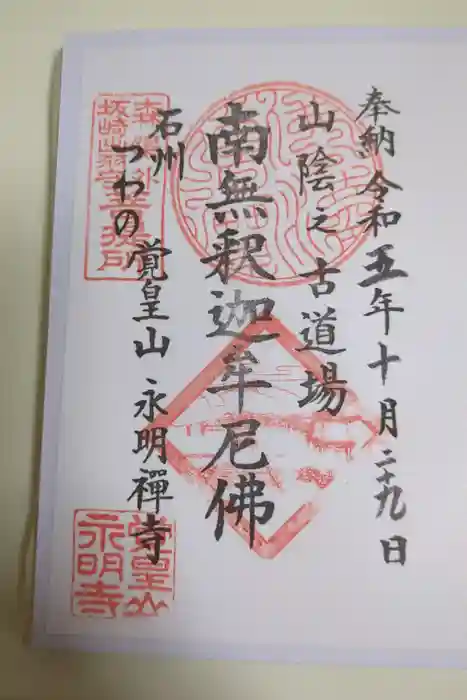 奉納 令和五年十月二十九日
山陰之古道場
南無釈迦牟尼佛
石州
つわの 覚皇山 永明禪寺
覚皇山
永明寺